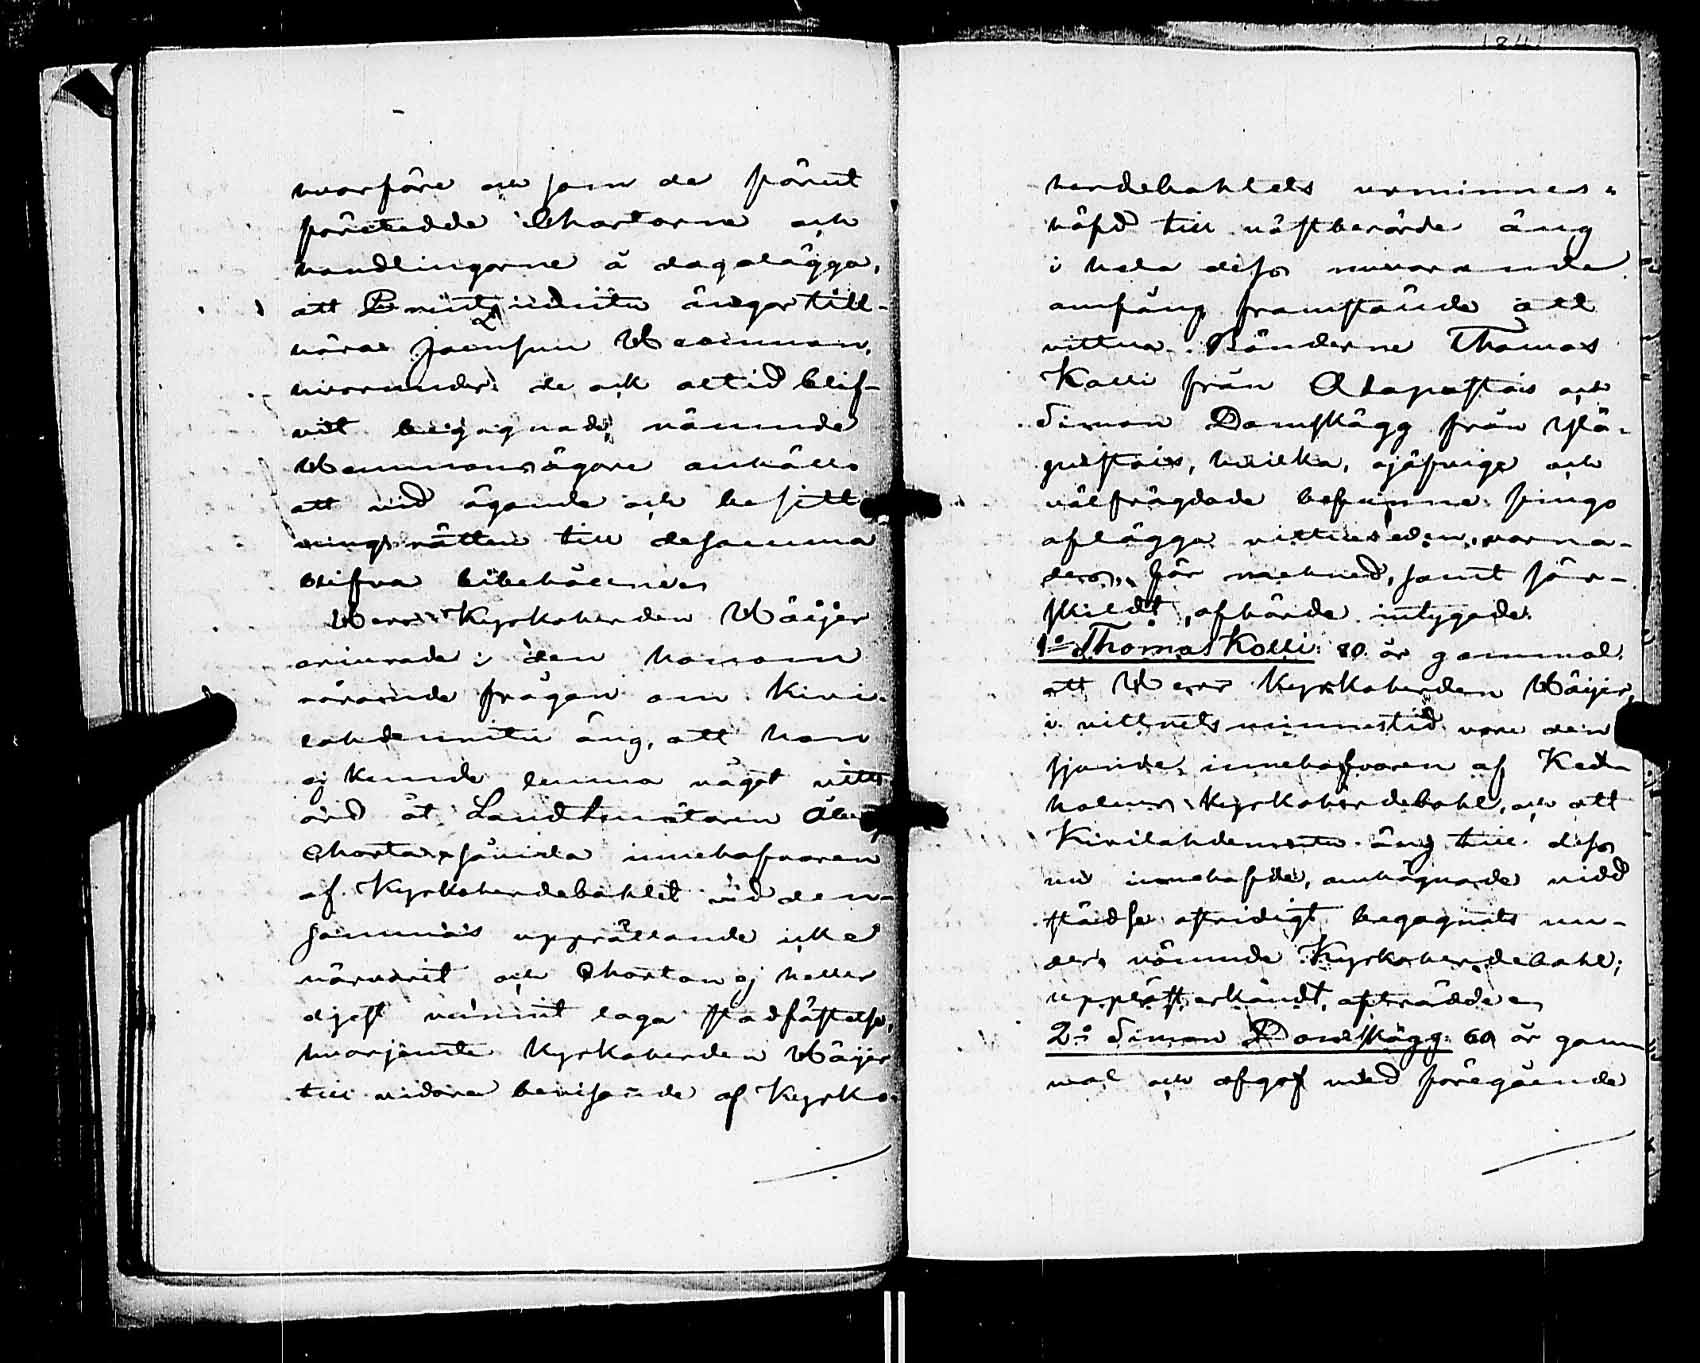 hvarföre och som de förut
företedde Chartorne och
handlingarne å dagalägga,
att ängar till-
höra Hemman,
hvarunder de ock altid blif-
vit begagnade, nämnde
Hemmansägare anhålla
att vid ägande och besitt
ningsrätten till desamma
blifva bibehållne.
Herr Kyrkoherden Wäijer
erinrade i den honom
rörande frågan om Kivi-
lahdennitu äng, att han
ej kunde lemna något vitts
ord åt Landtmätaren
Charta, såvida innehafvaren
af Kyrkoherdebohlet vid den-
sammas upprättande icke
närvarit och Chartan ej heller
dess vunnit laga stadfästelse,
hvarjemte Kyrkoherden Wäijer
till vidare bevisande af Kyrko-
184
herdebohlets urminnes-
häfd till nästberörde äng
i hela dess nuvarande
omfång framstälde att
vittna Bönderne Thomas
Kolli från och
Simon Domskägg från Ylä-
hvilka, ojäfvige och
välfrägdade befunne, fingo
aflägga vittneseden, varna-
des för mehned, samt sär-
skildt afhörde intygade:
1o Thomas Kolli 80 år gammal.
att Herr Kyrkoherden Wäijer,
i vittnets minnestid vore den
sjunde innehafvaren af Kex-
holms Kyrkoherdebohl, och att
Kivilahdennitu äng till dess
nu innehafde, omhägnade vidd
städse ostridigt begagnats un-
der nämnde Kyrkoherdebohl;
uppläst, erkändt, afträdde.
2o Simon Domskägg 60 år gam
mal och afgaf med föregående